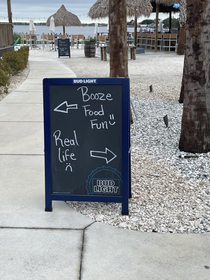 BUD LIGHT
Booze
Food
Fun
Real
life
BUD
LIGHT